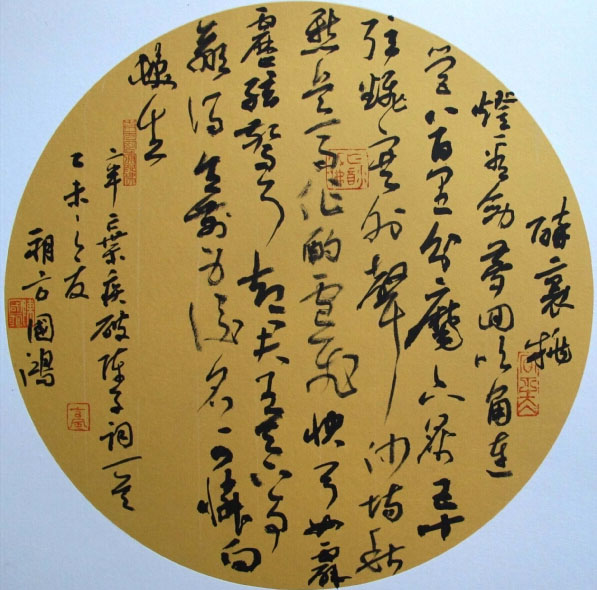 醉裏挑
燈看劍夢回吹角連
營八百里分麾下炙五十
弦翻塞外聲沙場秋
點兵馬作的盧飛快弓如霹
靂弦驚了却君王天下事
贏得生前身後名可憐白
髮生
辛棄疾破陣子詞一首
乙未之
方國鴻